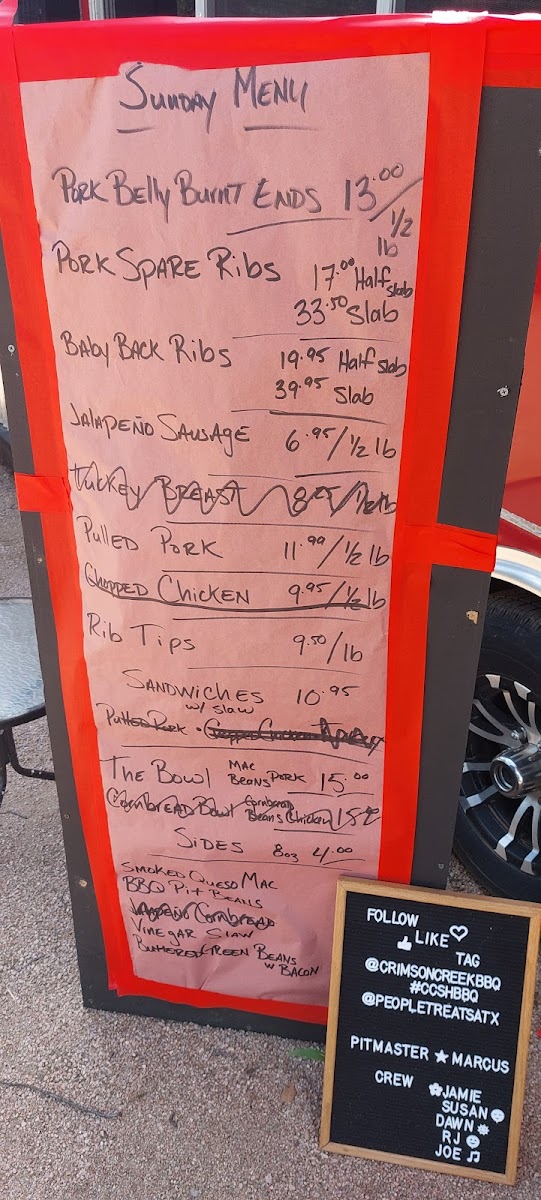 SUNDAY MENU
PORK BELLY BURNT ENDS 13.00/½ lb
PORK SPARE RIBS 17.00 Half slab
33.50 Slab
BABY BACK RIBS 19.95 Half slab
39.95 Slab
JALAPEÑO SAUSAGE 6.95/½ lb
TURKEY BREAST /½ lb
PULLED PORK 11.99/½ lb
CHOPPED CHICKEN 9.95/½ lb
RIB TIPS 9.50/lb
SANDWICHES 10.95
w/ SLAW
Pulled Pork - Chopped Chicken
THE BOWL MAC BEANS PORK 15.00
CORNBREAD BOWL Cornbread Beans Chicken
SIDES 8oz 4.00
SMOKED QUESO MAC
BBQ PIT BEANS
JALAPEÑO CORNBREAD
VINEGAR SLAW
BUTTERED GREEN BEANS
W BACON
FOLLOW
LIKE
TAG
@CRIMSONCREEKBBQ
#CCSHBBQ
@PEOPLETREATSATX
PITMASTER ★ MARCUS
CREW JAMIE
SUSAN
DAWN
RJ
JOE ♫